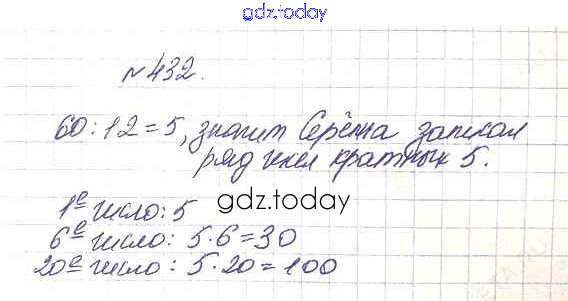 gdz.today
№432.
60:12=5, значит Серёжа записал
ряд чисел кратных 5.
1е число: 5
gdz.today
6е число: 5·6=30
20е число: 5·20=100